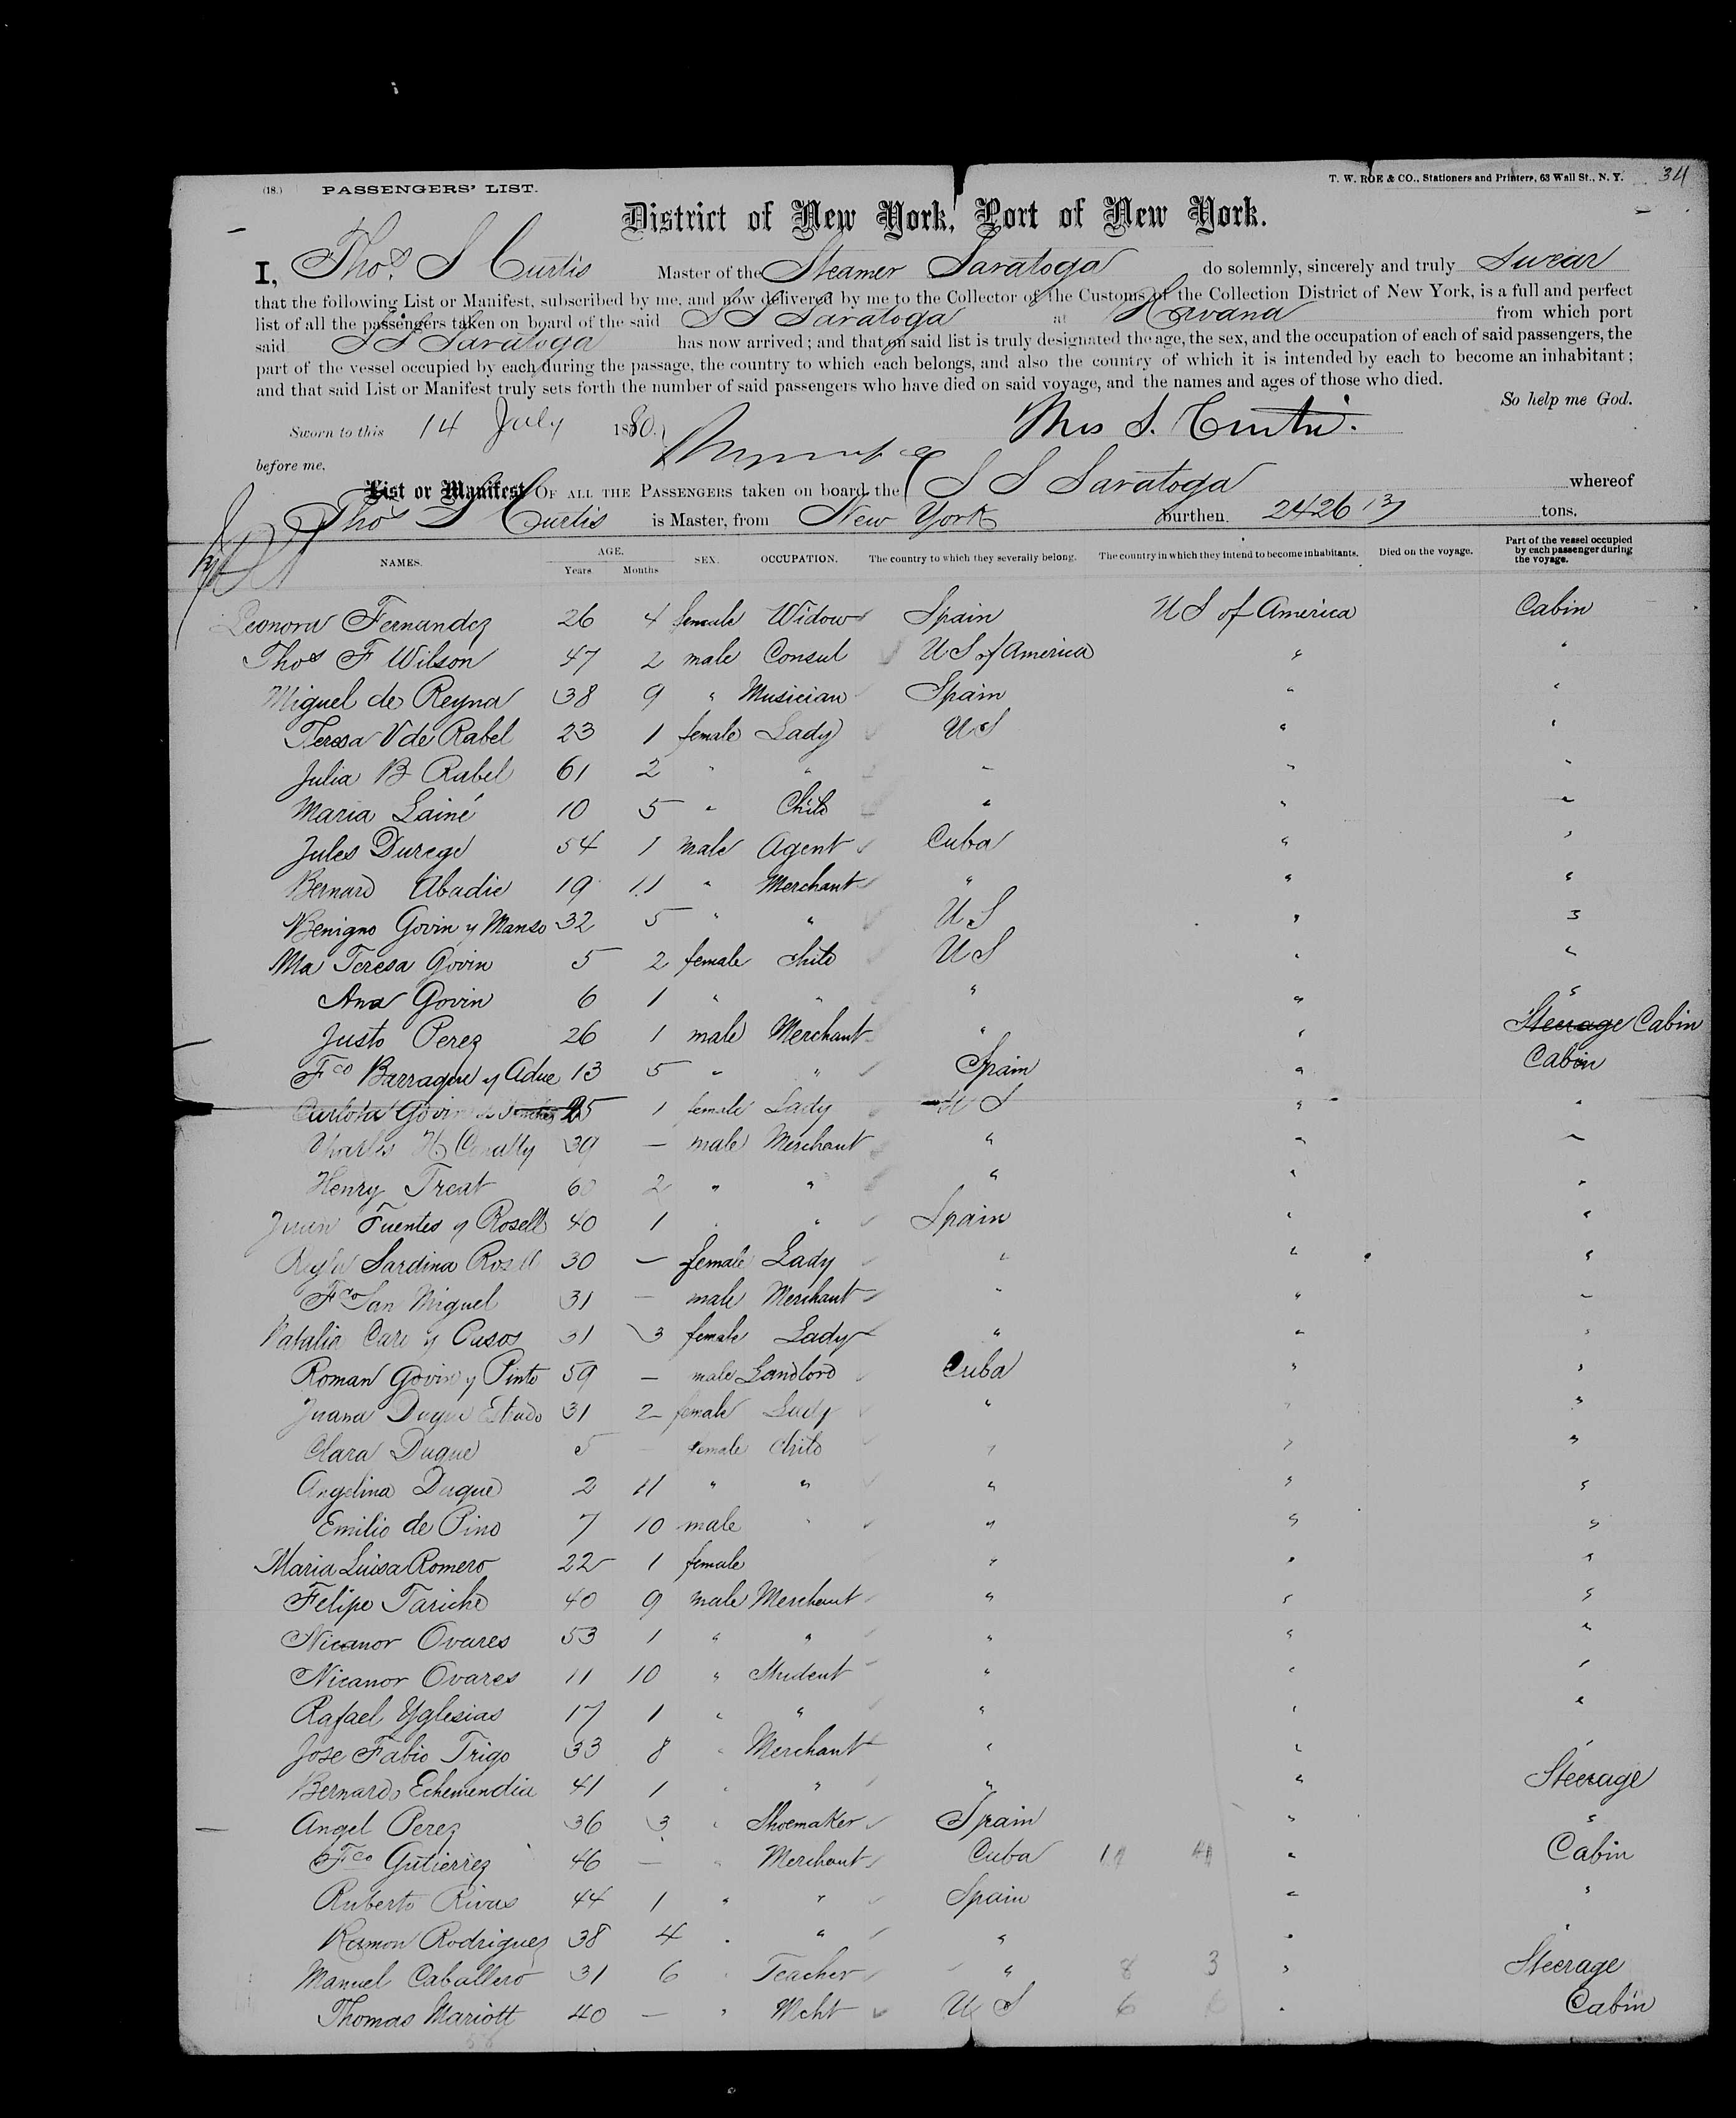 (18.) PASSENGERS' LIST. T. W. ROE & CO., Stationers and Printers, 63 Wall St., N. Y. 34
District of New York, Port of New York.
I, Thos. S Curtis Master of the Steamer Saratoga do solemnly, sincerely and truly Swear
that the following List or Manifest, subscribed by me, and now delivered by me to the Collector of the Customs of the Collection District of New York, is a full and perfect
list of all the passengers taken on board of the said S S Saratoga at Havana from which port
said S S Saratoga has now arrived; and that on said list is truly designated the age, the sex, and the occupation of each of said passengers, the
part of the vessel occupied by each during the passage, the country to which each belongs, and also the country of which it is intended by each to become an inhabitant;
and that said List or Manifest truly sets forth the number of said passengers who have died on said voyage, and the names and ages of those who died.
So help me God.
Sworn to this 14 July 1880. Thos S. Curtis.
before me.
List or Manifest OF ALL THE PASSENGERS taken on board the S S Saratoga whereof
Thos S Curtis is Master, from New York burthen. 2426 13 tons.
NAMES. AGE. Years Months SEX. OCCUPATION. The country to which they severally belong. The country in which they intend to become inhabitants. Died on the voyage. Part of the vessel occupied by each passenger during the voyage.
Leonora Fernandez 26 4 female Widow Spain U S of America Cabin
Thos F Wilson 47 2 male Consul U S of America " "
Miguel de Reyna 38 9 " Musician Spain " "
Teresa V de Rabel 23 1 female Lady U S " "
Julia B Rabel 61 2 " " " " "
Maria Lainé 10 5 " Child " " "
Jules Durege 54 1 male Agent Cuba " "
Bernard Abadie 19 11 " Merchant " " "
Benigno Govin y Manso 32 5 " " U S " "
Ma Teresa Govin 5 2 female child U S " "
Ana Govin 6 1 " " " " "
Justo Perez 26 1 male Merchant " " Steerage Cabin
Fco Barraque y Adue 13 5 " " Spain " Cabin
Carlota Govin 25 1 female Lady U S " "
Charles H 39 — male Merchant " " "
Henry Treat 60 2 " " " " "
Juan Fuentes y Rosell 40 1 " " Spain " "
Sardina Rosell 30 — female Lady " " "
Fco San Miguel 31 — male Merchant " " "
Natalia Care y Cusos 31 3 female Lady " " "
Roman Govin y Pinto 59 — male Landlord Cuba " "
Juana Duque Estrado 31 2 female Lady " " "
Clara Duque 5 — female child " " "
Angelina Duque 2 11 " " " " "
Emilio de Pino 7 10 male " " " "
Maria Luisa Romero 22 1 female " " "
Felipe Tariche 40 9 male Merchant " " "
Nicanor Ovares 53 1 " " " " "
Nicanor Ovares 11 10 " Student " " "
Rafael Yglesias 17 1 " " " " "
Jose Fabio Trigo 33 8 " Merchant " " "
Bernardo Echemendia 41 1 " " " " Steerage
Angel Perez 36 3 " Shoemaker Spain " "
Fco Gutierrez 46 — " Merchant Cuba " Cabin
Ruberto Rivas 44 1 " " Spain " "
Ramon Rodriguez 38 4 " " " " "
Manuel Caballero 31 6 " Teacher " 8 3 " Steerage
Thomas Mariott 40 — " Mcht U S 6 6 " Cabin